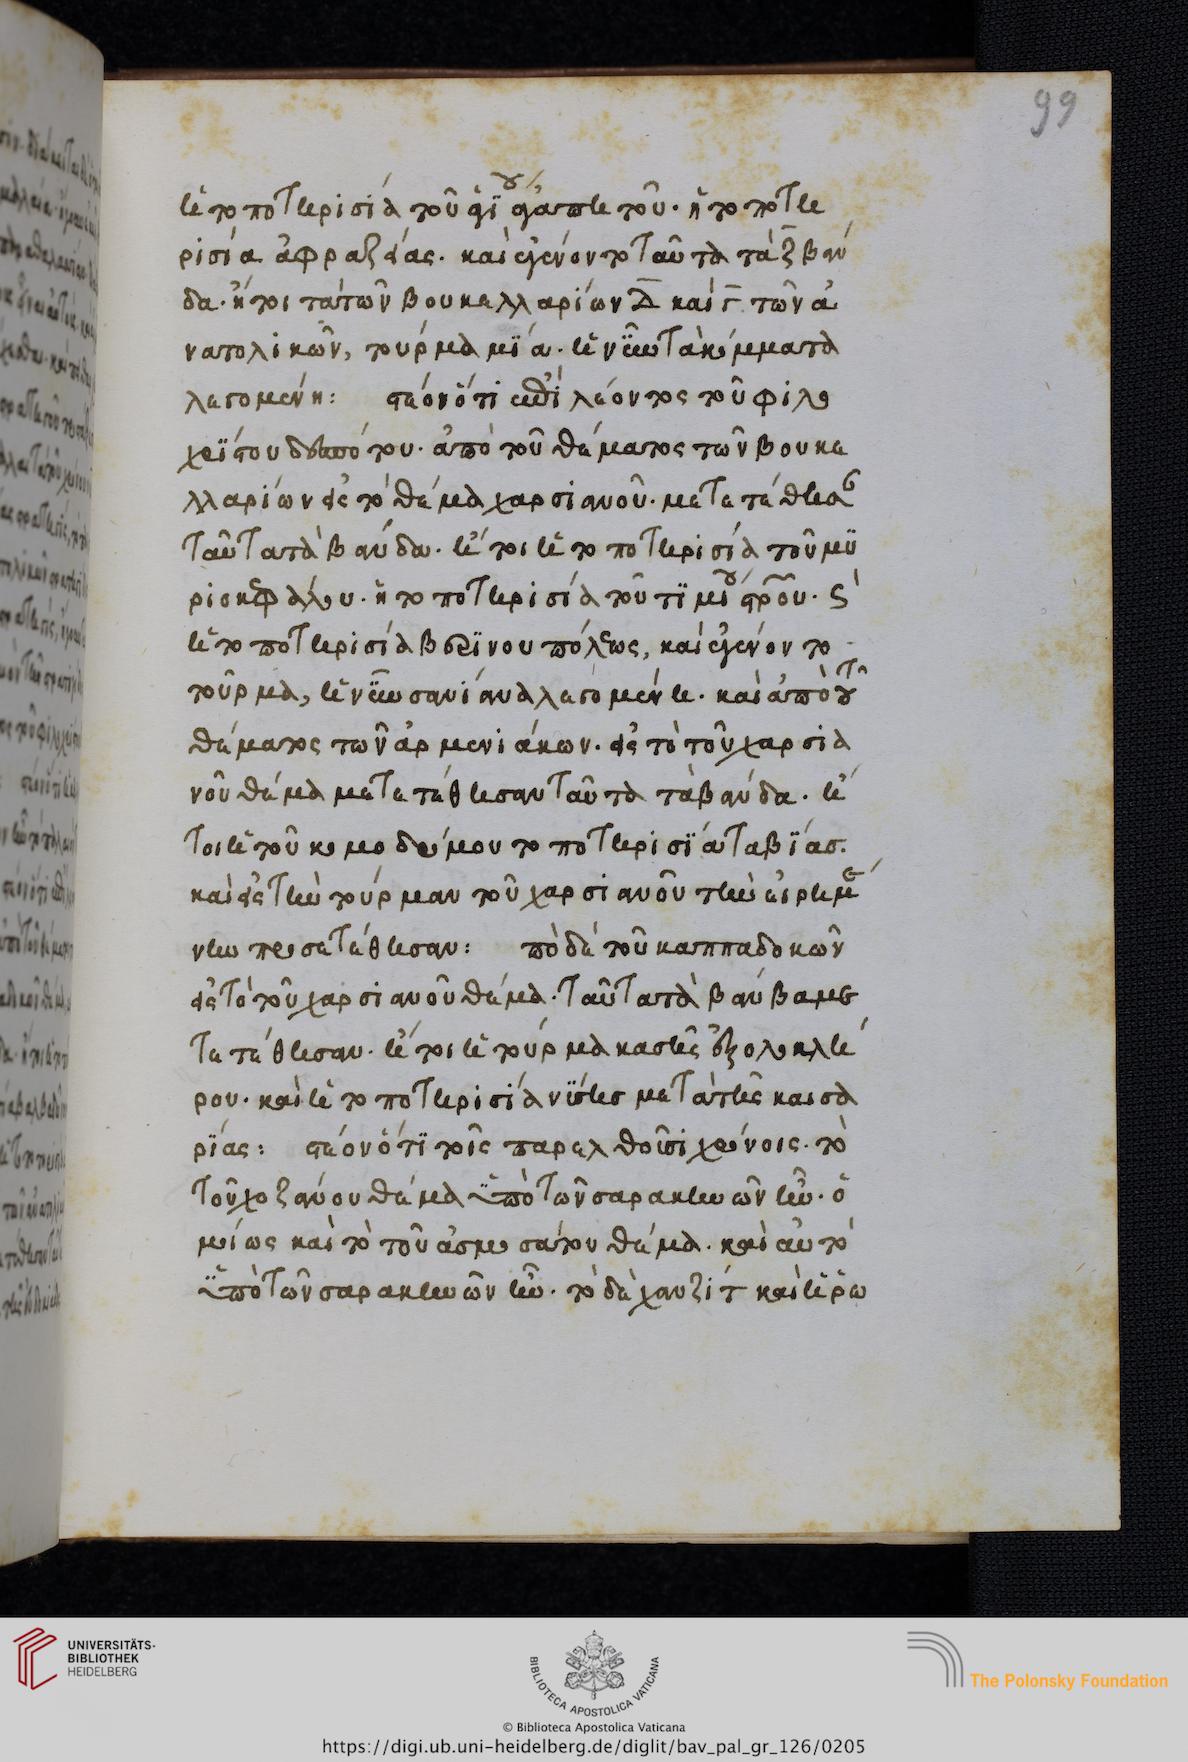 99
ἡ τοποτηρισία τοῦ ἁγίου ἀγάπητοῦ· ἡ τοποτη
ρισία ἀφραζείας· καὶ ἐγένοντο ταῦτα τὰ ζ βαν
δα· ἤτοι τὰ τῶν βουκελλαρίων δ καὶ γ τῶν ἀ
νατολικῶν, τούρμα μία· ἡ νυνὶ τὰ κόμματα
λεγομένη: ἰστέον ὅτι ἐπὶ λέοντος τοῦ φιλο
χρίστου δεσπότου· ἀπὸ τοῦ θέματος τῶν βουκε
λλαρίων εἰς τὸ θέμα χαρσιανοῦ· μετετέθησαν
ταῦτα τὰ βάνδα· ἤτοι ἡ τοποτηρισία τοῦ μυ
ριοκεφάλου· ἡ τοποτηρισία τοῦ τιμίου σταυροῦ· καὶ
ἡ τοποτηρισία βερινουπόλεως, καὶ ἐγένοντο
τοῦρμα, ἡ νυνὶ σανίανα λεγομένη· καὶ ἀπὸ τοῦ
θέματος τῶν ἀρμενιάκων· εἰς τὸ τοῦ χαρσια
νοῦ θέμα μετετέθησαν ταῦτα τὰ βάνδα· ἤ
τοι ἡ τοῦ κομοδρόμου τοποτηρισία ταβίας·
καὶ εἰς τὴν τούρμαν τοῦ χαρσιανοῦ τὴν εἰρημέ
νην προσετέθησαν: ἀπὸ δὲ τοῦ καππαδοκῶν
εἰς τὸ τοῦ χαρσιανοῦ θέμα· ταῦτα τὰ βάνβα με
τετέθησαν· ἤτοι ἡ τούρμα κασῆς ἐξ ὁλοκλή
ρου· καὶ ἡ τοποτηρισία νύσης μετὰ τῆς καισα
ρίας: ἰστέον ὅτι τοῖς παρελθοῦσι χρόνοις· τὸ
τοῦ χοζάνου θέμα ὑπὸ τῶν σαρακηνῶν ἦν· ὁ
μοίως καὶ τὸ τοῦ ἀσμοσάτου θέμα· καὶ αὐτὸ
ὑπὸ τῶν σαρακηνῶν ἦν· τὸ δὲ χανζὶτ καὶ ἡ ῥω
UNIVERSITÄTS-
BIBLIOTHEK
HEIDELBERG
BIBLIOTECA APOSTOLICA VATICANA
© Biblioteca Apostolica Vaticana
The Polonsky Foundation
https://digi.ub.uni-heidelberg.de/diglit/bav_pal_gr_126/0205